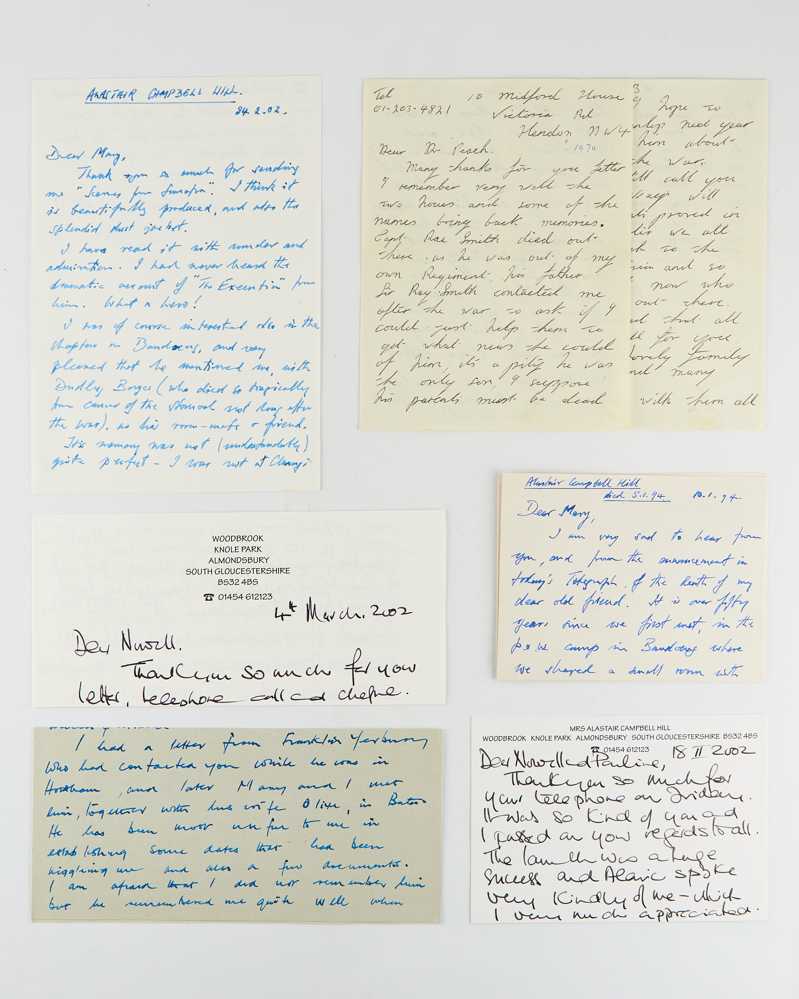 ALASTAIR CAMPBELL HILL.
24.2.02.
Dear Mary,
Thank you so much for sending
me "Scenes from Sumatra". I think it
is beautifully produced, and also the
splendid dust jacket.
I have read it with wonder and
admiration. I had never heard the
dramatic account of "The Execution" from
him. What a hero!
I was of course interested also in the
chapters on Bandoeng, and very
pleased that he mentioned me, with
Dudley (who died so tragically
from cancer of the stomach not long after
the war). as his room-mate & friend.
His memory was not (understandably)
quite perfect - I was not at Changi
Tel
01-203-4821
10 Midford House
Victoria Rd
Hendon NW4
1970
Dear Dr Peach.
Many thanks for your letter
I remember very well the
two houses and some of the
names bring back memories.
Capt. Rae Smith died out-
there as he was out of my
own Regiment his father
Sir Rae Smith contacted me
after the war to ask if I
could just help them to
get what news she could
of him, its a pity he was
the only son I suppose
his parents must be dead
3
I hope to
next year
him about-
the war.
call you
will
proved in
we all
to the
and so
now who
out there.
but all
for your
lovely family
many
with them all
Alastair Campbell Hill
died 5.1.94. 10.1.94.
Dear Mary,
I am very sad to hear from
you, and from the announcement in
today's Telegraph, of the death of my
dear old friend. It is over fifty
years since we first met, in the
p.o.w camp in Bandoeng where
we shared a small room with
WOODBROOK
KNOLE PARK
ALMONDSBURY
SOUTH GLOUCESTERSHIRE
BS32 4BS
☎ 01454 612123
4th March. 2002
Dear Nowell.
Thankyou so much for your
letter, telephone call and cheque.
I had a letter from Franklin Yerbury
who had contacted you while he was in
Horsham, and later Mary and I met
him, together with his wife Olive, in Bath.
He has been most useful to me in
establishing some dates that had been
niggling me and also a few documents.
I am afraid that I did not remember him
but he remembered me quite well when
MRS ALASTAIR CAMPBELL HILL
WOODBROOK KNOLE PARK ALMONDSBURY SOUTH GLOUCESTERSHIRE BS32 4BS
☎ 01454 612123
18 II 2002
Dear Nowell and Pauline,
Thankyou so much for
your telephone on Friday.
It was so kind of you and
I passed on your regards to all.
The launch was a huge
success and Alaric spoke
very kindly of me - which
I very much appreciated.